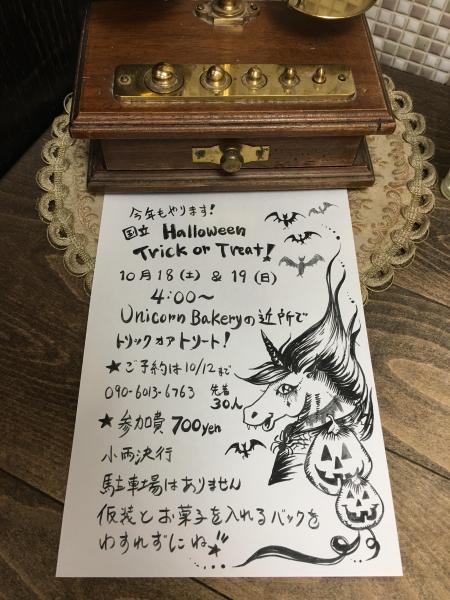 今年もやります!
国立 Halloween
Trick or Treat!
10月18(土) & 19(日)
4:00〜
Unicorn Bakeryの近所で
トリック オア トリート!
★ご予約は10/12まで
090-6013-6763 先着30人
★参加費 700yen
小雨決行
駐車場はありません
仮装とお菓子を入れるバックを
わすれずにね